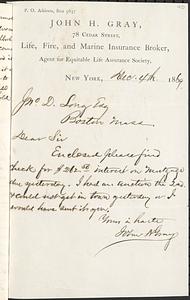 P. O. Address, Box 3637
JOHN H. GRAY,
78 CEDAR STREET,
Life, Fire, and Marine Insurance Broker,
Agent for Equitable Life Assurance Society.
NEW YORK, Dec. 4th 186
Jno D. Long Esq
Boston Mass
Dear Sir
Enclosed please find
check for $ interest on Mortgage
due yesterday. I had an auction the 2nd
& could not get in town yesterday or I
would have sent it you.
Yours in haste
John H Gray